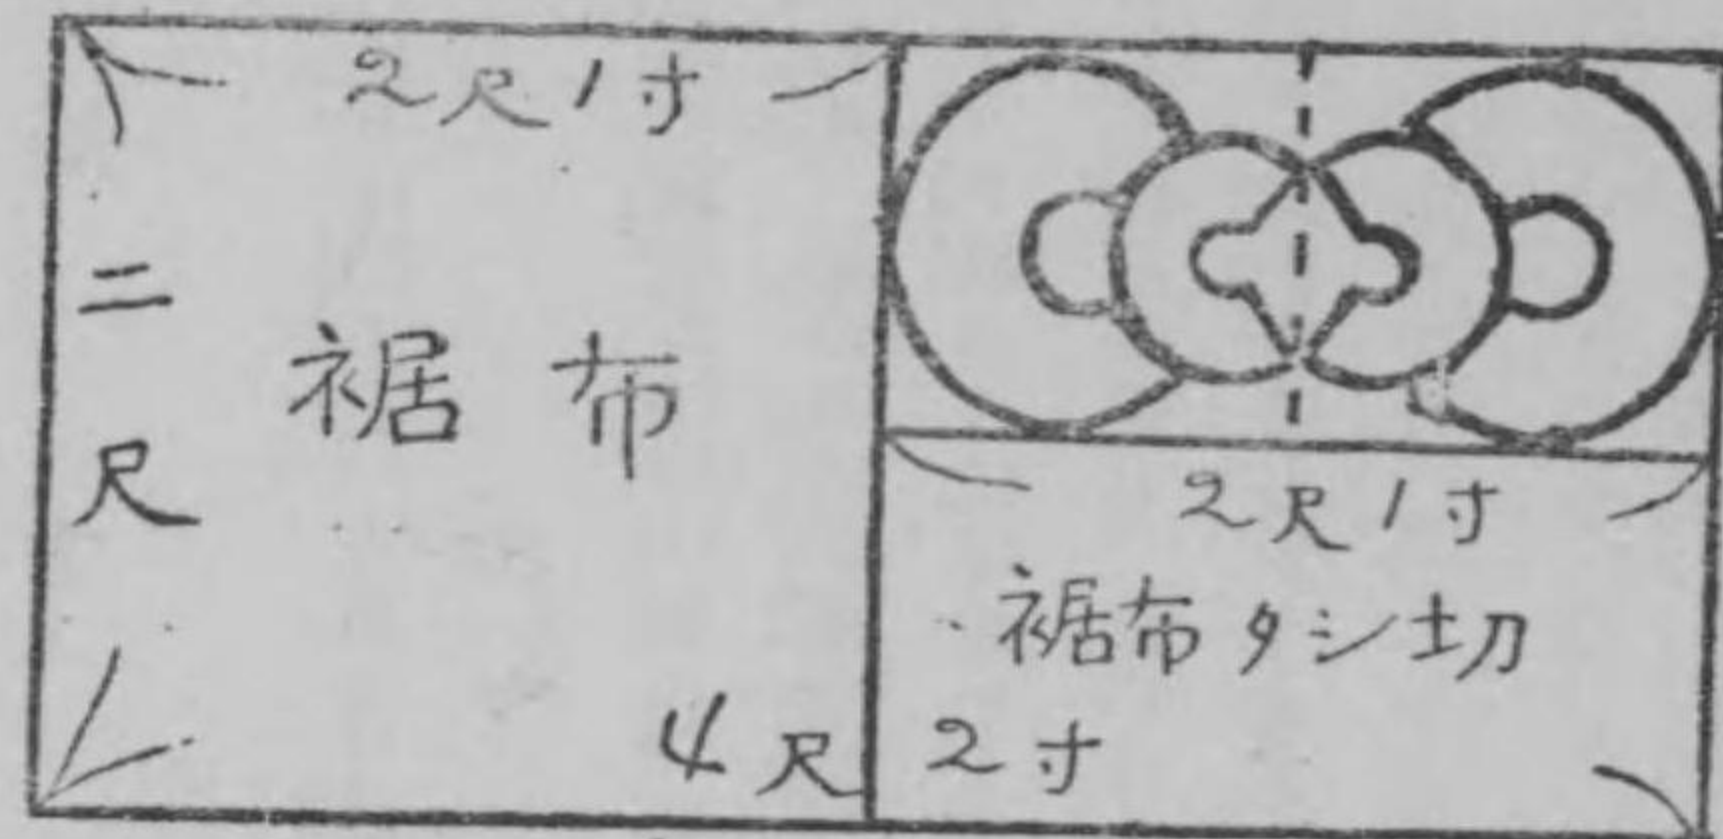 2尺1寸
二尺
裾布
2尺1寸
裾布タシ切
4尺2寸